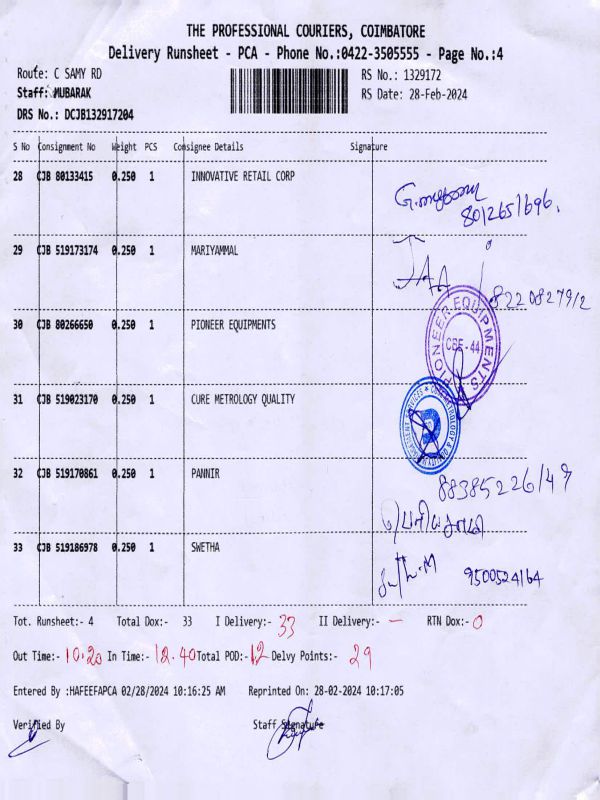 THE PROFESSIONAL COURIERS, COIMBATORE
Delivery Runsheet - PCA - Phone No.:0422-3505555 - Page No.:4
Route: C SAMY RD
RS No.: 1329172
Staff: MUBARAK
RS Date: 28-Feb-2024
DRS No.: DCJB132917204
S No Consignment No Weight PCS Consignee Details Signature
28 CJB 80133415 0.250 1 INNOVATIVE RETAIL CORP
8012651696.
29 CJB 519173174 0.250 1 MARIYAMMAL
8220827912
30 CJB 80266650 0.250 1 PIONEER EQUIPMENTS
PIONEER EQUIPMENTS
CBE-44
31 CJB 519023170 0.250 1 CURE METROLOGY QUALITY
32 CJB 519170861 0.250 1 PANNIR
33 CJB 519186978 0.250 1 SWETHA
9500524164
Tot. Runsheet:- 4 Total Dox:- 33 I Delivery:- 33 II Delivery:- — RTN Dox:- 0
Out Time:- 10.20 In Time:- 12.40 Total POD:- 12 Delvy Points:- 29
Entered By :HAFEEFAPCA 02/28/2024 10:16:25 AM Reprinted On: 28-02-2024 10:17:05
Verified By Staff Signature